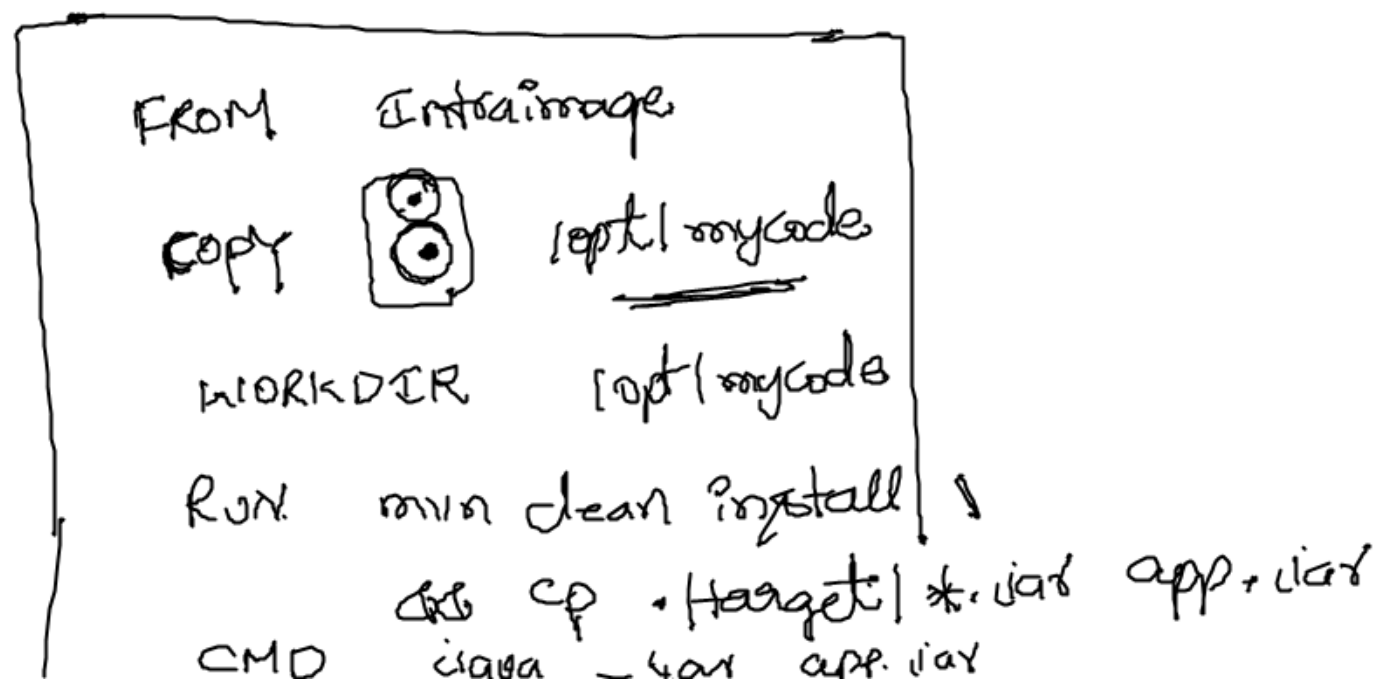 FROM Intraimage
COPY /opt/mycode
WORKDIR /opt/mycode
RUN mvn clean install \
&& cp ./target/*.jar app.jar
CMD java -jar app.jar